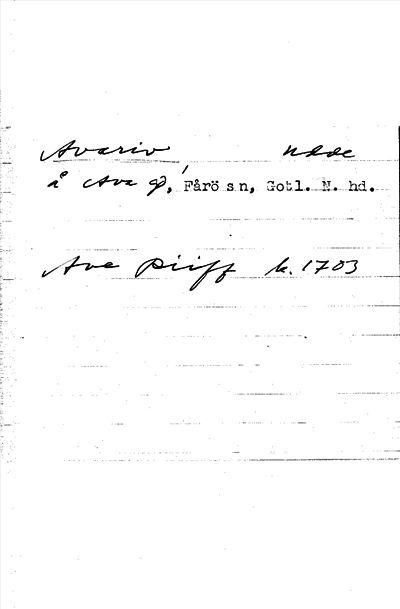 Avariv udde
å Ava gd, Fårö sn, Gotl. N. hd.
Ava Riiff k. 1703